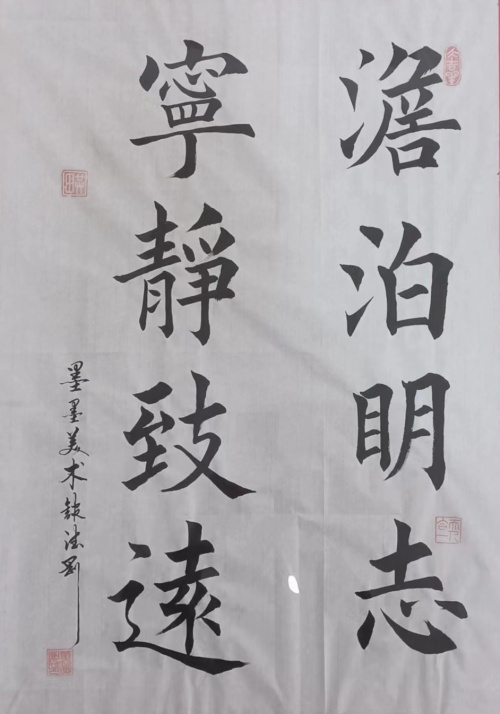 澹泊明志
寧靜致遠
墨墨美术